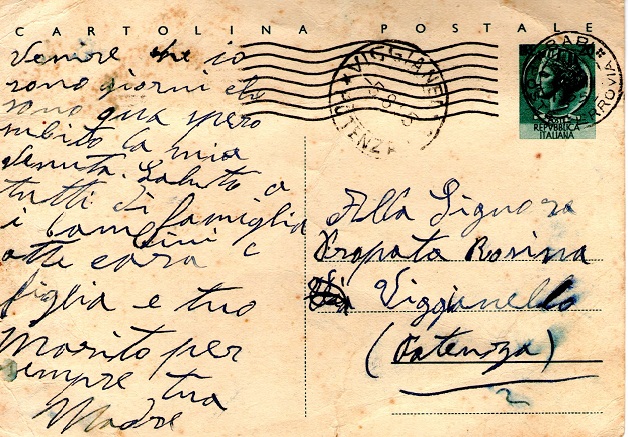 CARTOLINA POSTALE
venire che io
sono giorni che
sono qua spero
subito la mia
venuta. Saluto a
tutti di famiglia
i bambini e
atte cara
figlia e tuo
Marito per
sempre tua
Madre
VIGGIANE
POTENZA
REPVBBLICA
ITALIANA
FERROVIA
Alla Signora
Propata Rosina
Via Viggianello
(Potenza)